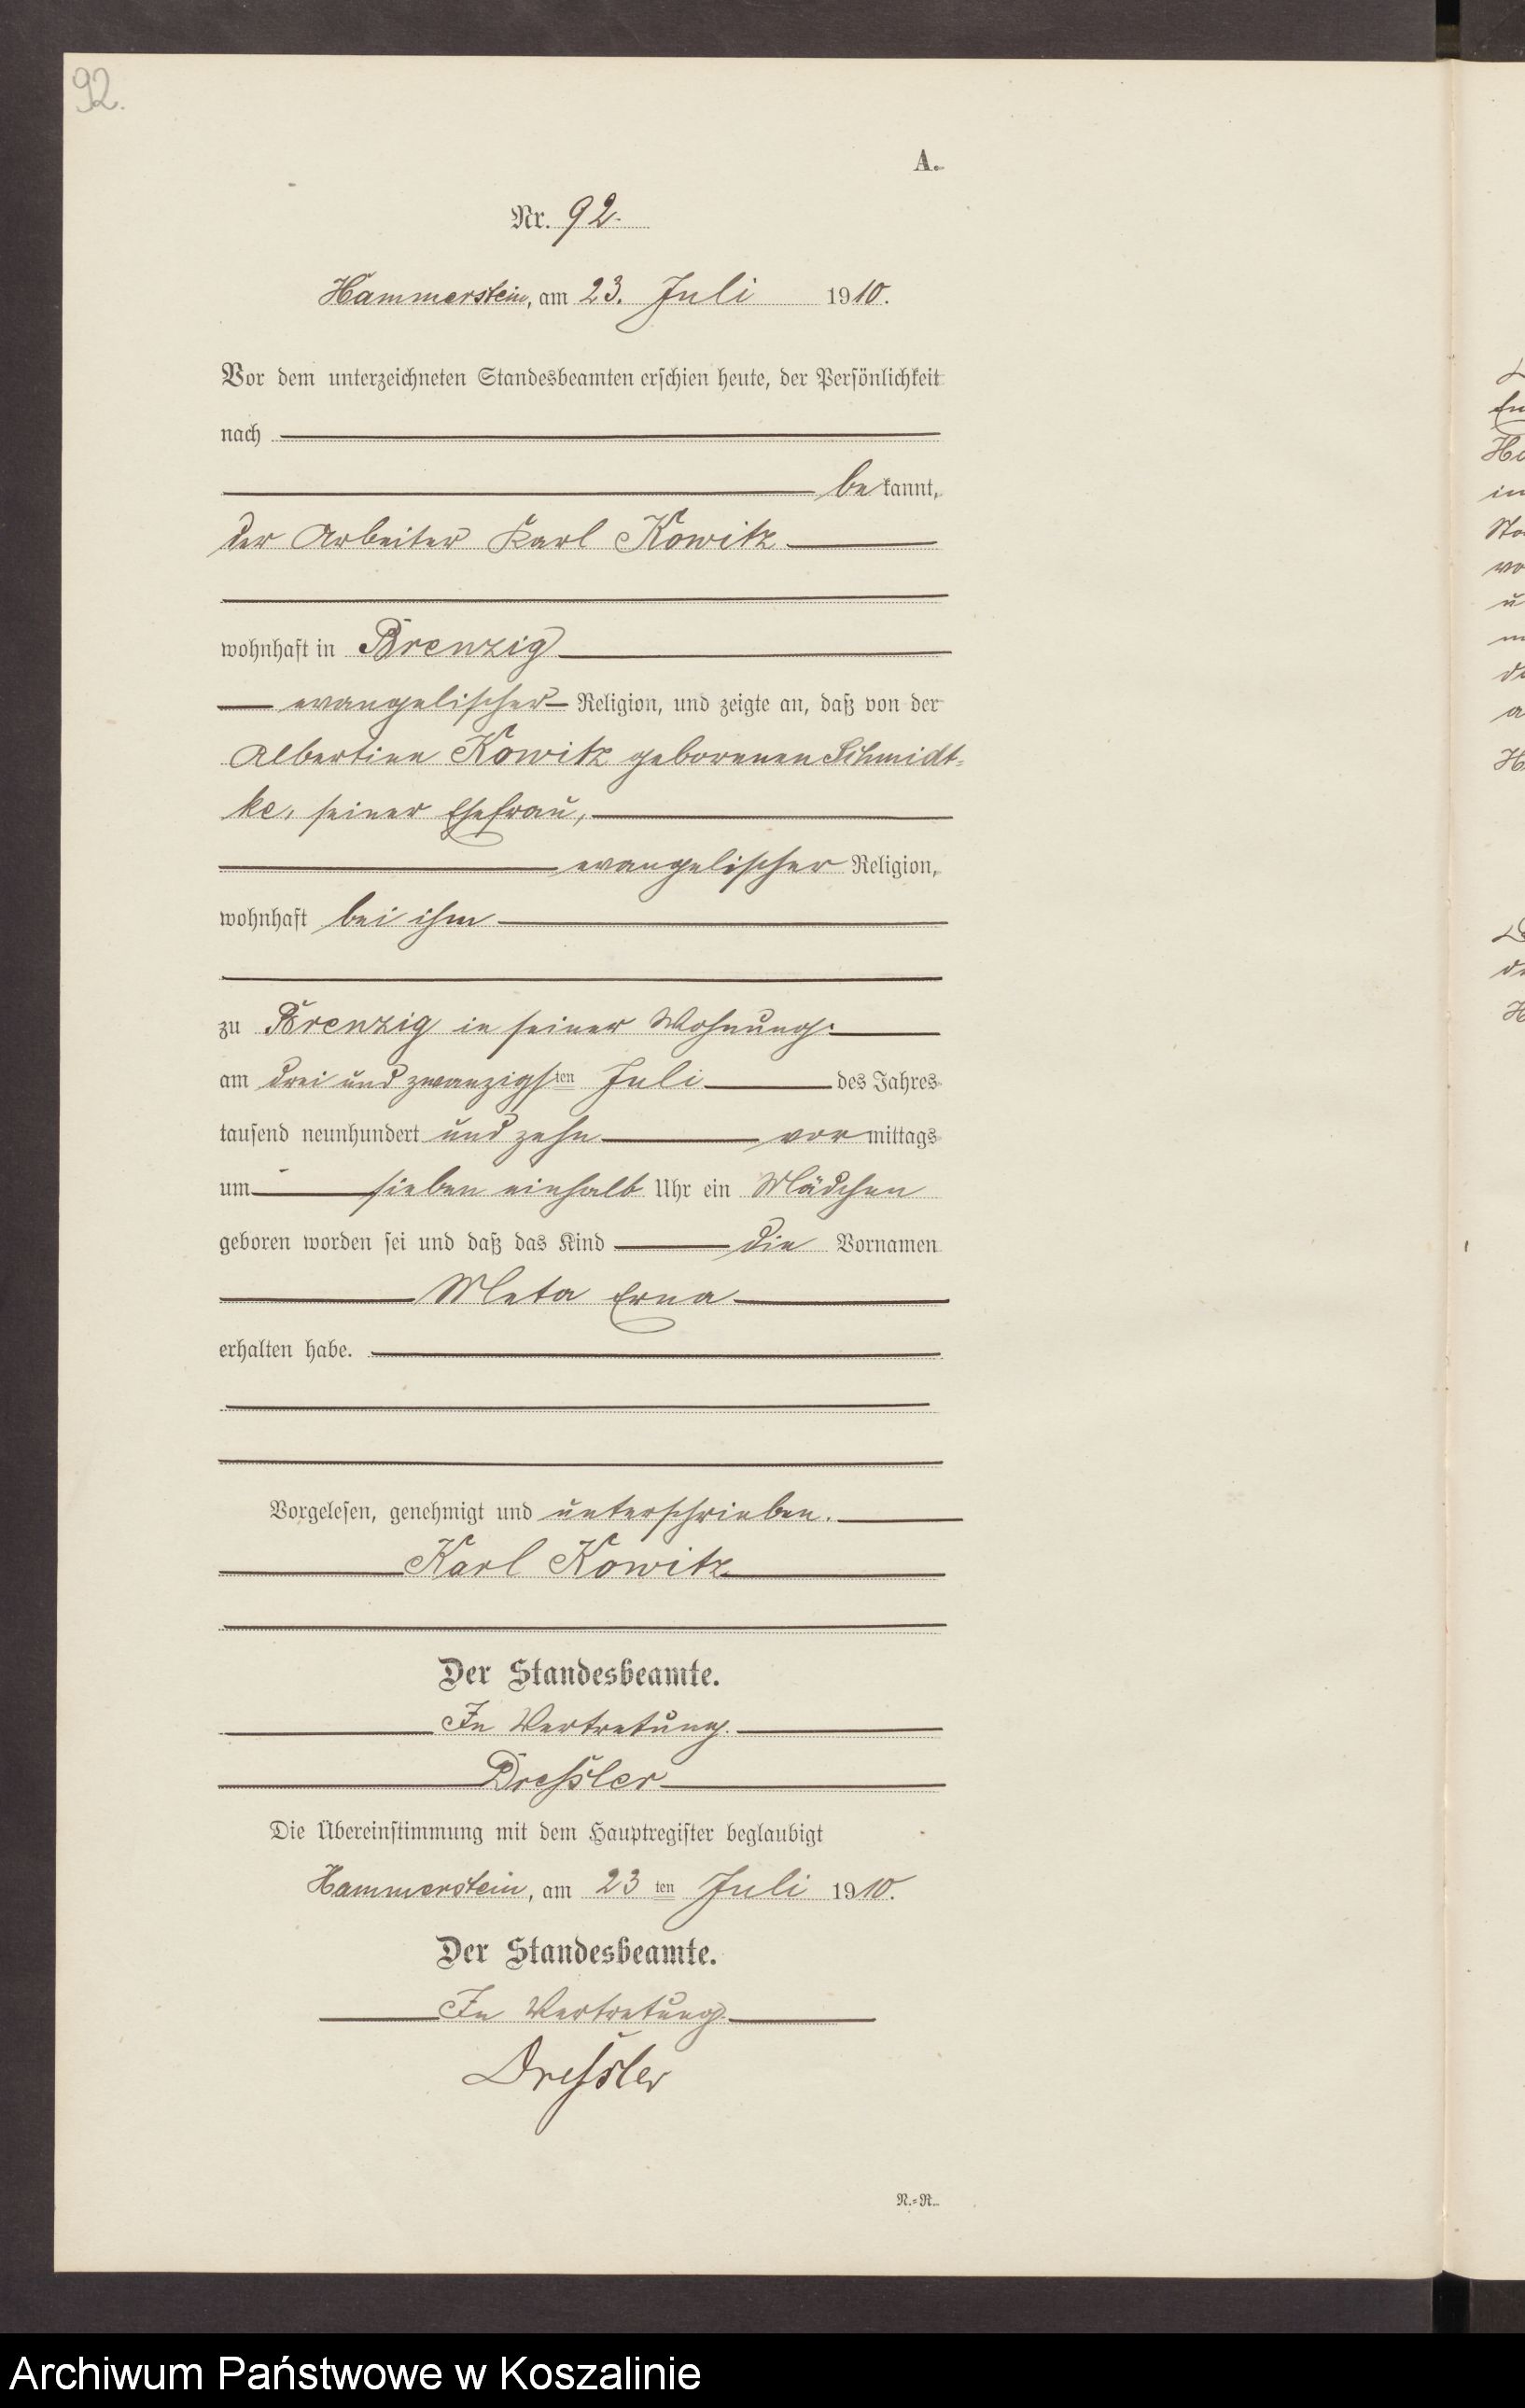 92.
A.
Nr. 92.
Hammerstein, am 23. Juli 1910.
Vor dem unterzeichneten Standesbeamten erschien heute, der Persönlichkeit
nach
bekannt,
der Arbeiter Karl Kowitz
wohnhaft in Brenzig
evangelischer Religion, und zeigte an, daß von der
Albertine Kowitz geborenen Schmidt-
ke, seiner Ehefrau,
evangelischer Religion,
wohnhaft bei ihm
zu Brenzig in seiner Wohnung
am drei und zwanzigsten Juli des Jahres
tausend neunhundert und zehn vormittags
um sieben einhalb Uhr ein Mädchen
geboren worden sei und daß das Kind die Vornamen
Meta Erna
erhalten habe.
Vorgelesen, genehmigt und unterschrieben.
Karl Kowitz
Der Standesbeamte.
In Vertretung.
Dressler
Die Übereinstimmung mit dem Hauptregister beglaubigt
Hammerstein, am 23 ten Juli 1910.
Der Standesbeamte.
In Vertretung.
Dressler
N.=R.
Archiwum Państwowe w Koszalinie